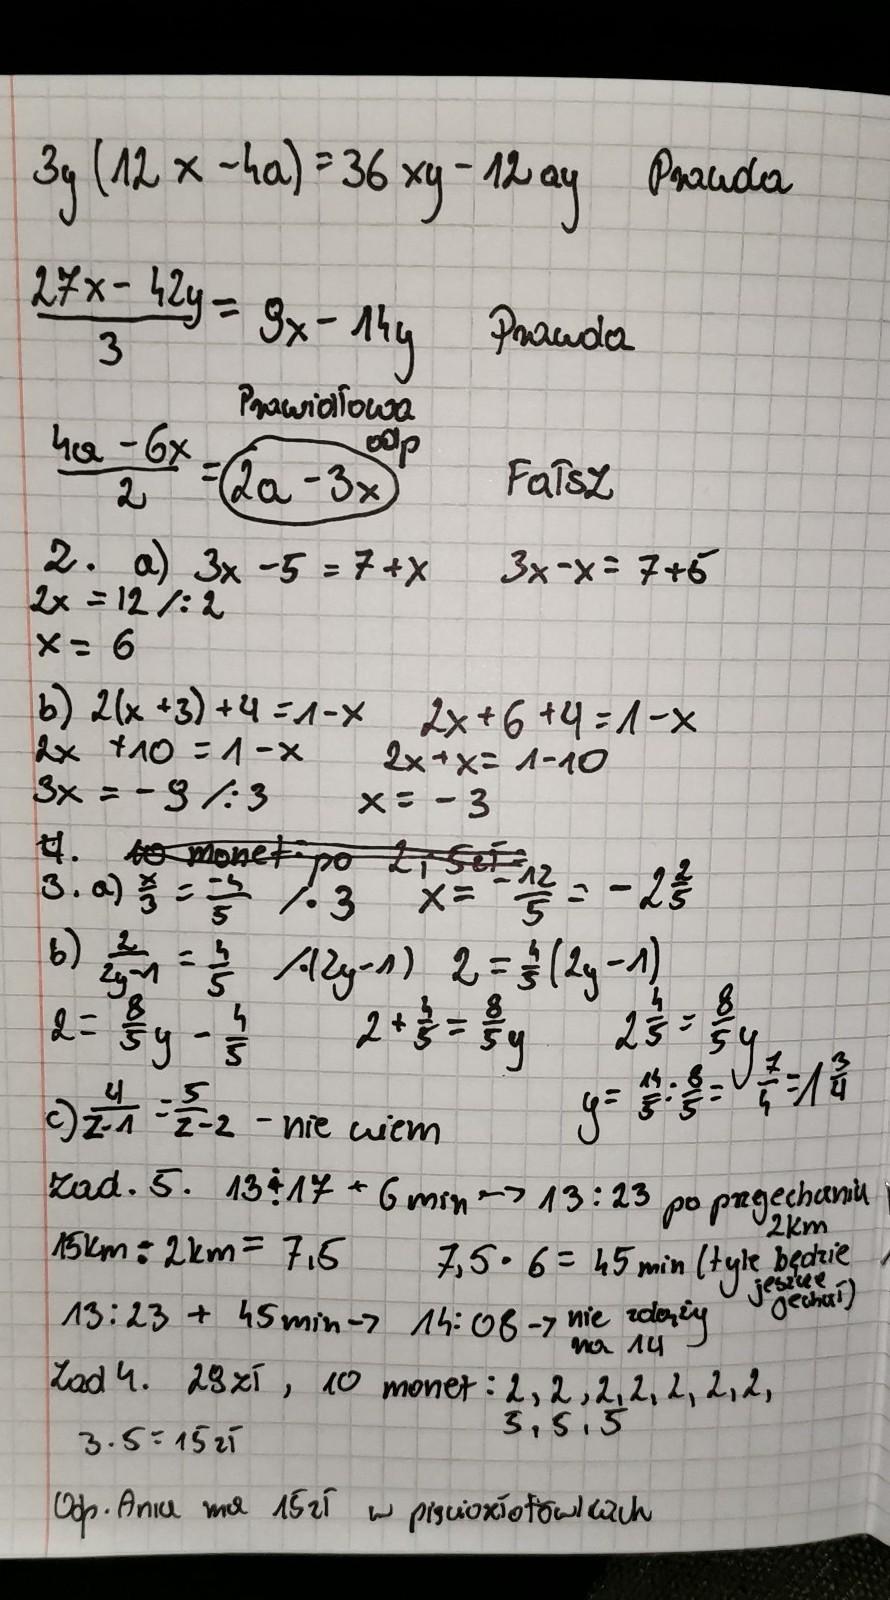 3y (12x - 4a) = 36xy - 12ay Prawda
27x - 42y / 3 = 9x - 14y Prawda
Prawidłowa odp
4a - 6x / 2 = 2a - 3x Fałsz
2. a) 3x - 5 = 7 + x 3x - x = 7 + 5
2x = 12 /: 2
x = 6
b) 2(x + 3) + 4 = 1 - x 2x + 6 + 4 = 1 - x
2x + 10 = 1 - x 2x + x = 1 - 10
3x = - 9 /: 3 x = - 3
4. 10 monet po 2 i 5 zł =
3. a) x/3 = -4/5 /· 3 x = -12/5 = - 2 2/5
b) 2/(2y-1) = 4/5 /·(2y-1) 2 = 4/5 (2y-1)
2 = 8/5 y - 4/5 2 + 4/5 = 8/5 y 2 4/5 = 8/5 y
y = 14/5 : 8/5 = 7/4 = 1 3/4
c) 4/(z-1) = 5/(z-2) - nie wiem
Zad. 5. 13:17 + 6 min -> 13:23 po przejechaniu 2km
15km : 2km = 7,5 7,5 · 6 = 45 min (tyle będzie jeszcze jechał)
13:23 + 45 min -> 14:08 -> nie zdąży na 14
Zad 4. 29 zł, 10 monet: 2, 2, 2, 2, 2, 2, 2,
5, 5, 5
3 · 5 = 15 zł
Odp. Ania ma 15 zł w pięciozłotówkach